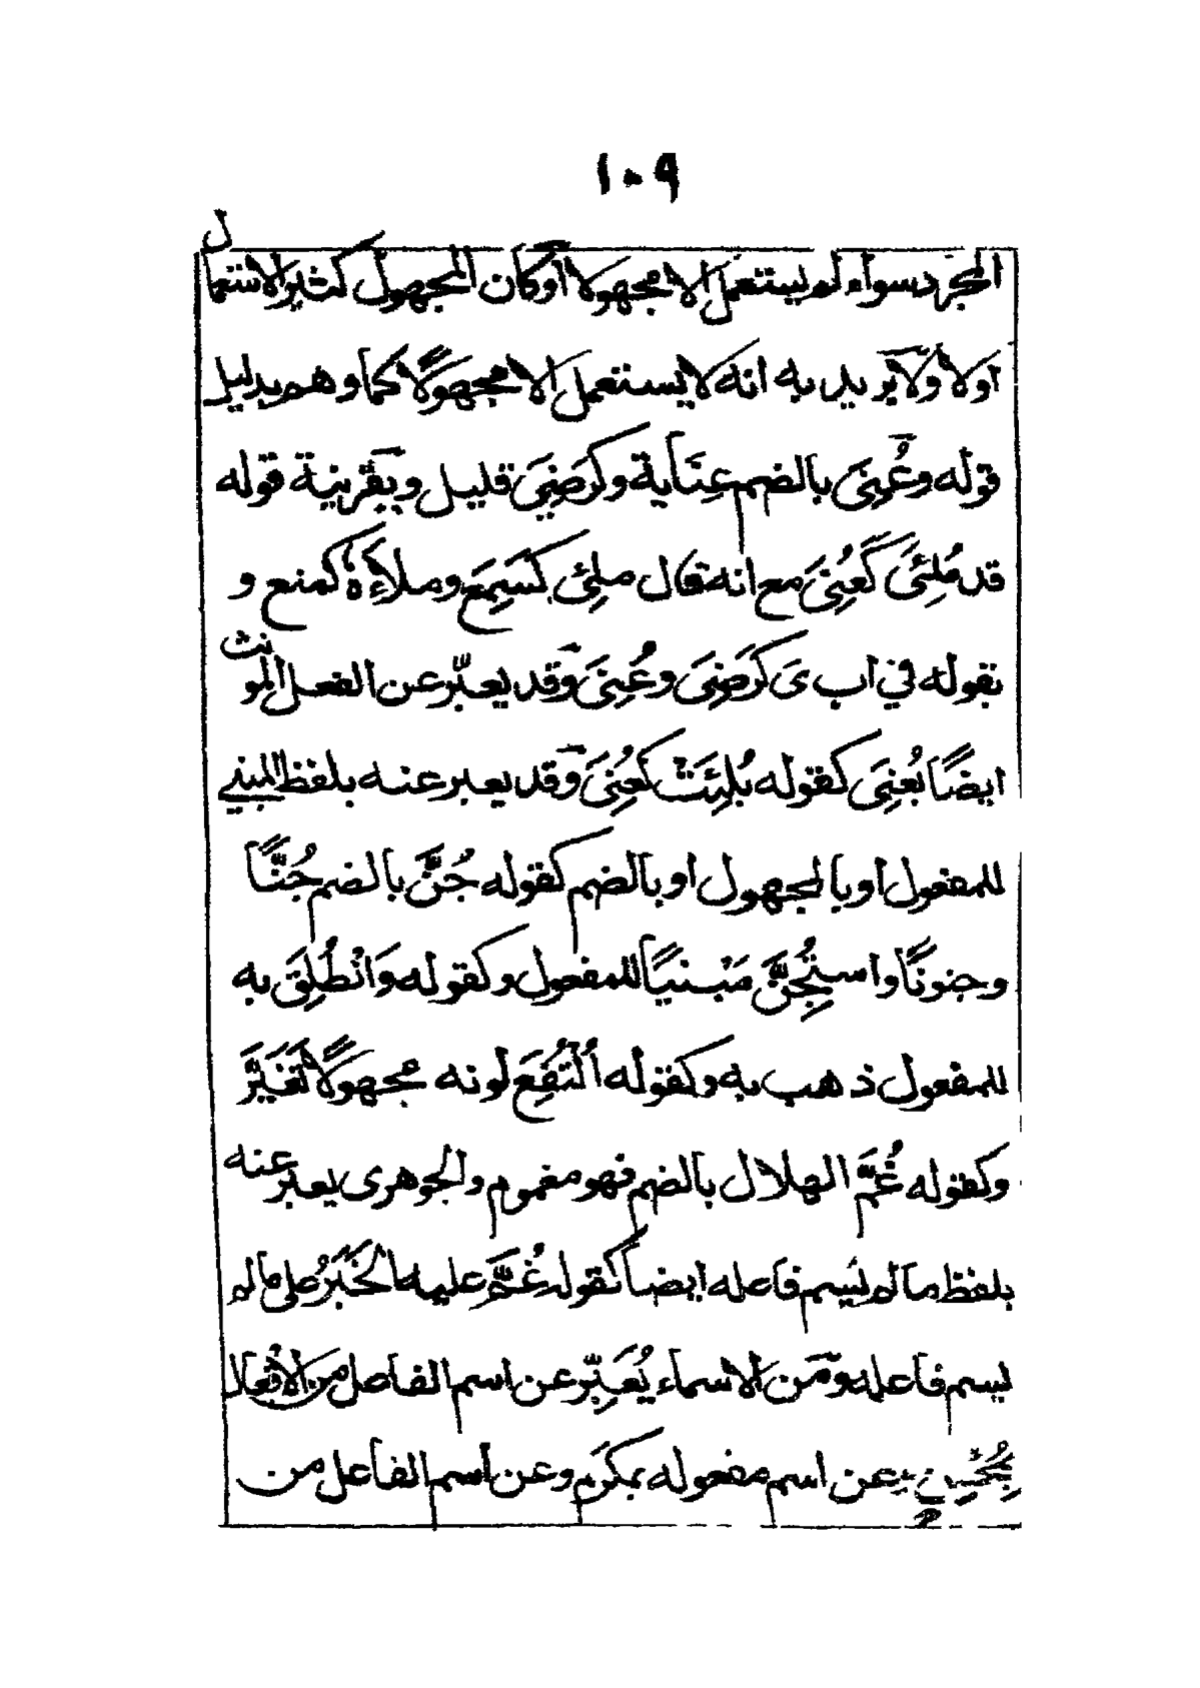 ١٠٩
المجرد سواء لم يستعمل الا مجهولا أو كان المجهول كثير الاستعمال
اولا ولا يريد به انه لا يستعمل الا مجهولًا كما وهم بدليل
قوله وعُنِىَ بالضم عِنَاية وكرَضِىَ قليل وبقرينة قوله
قد مُلِئَ كَعُنِىَ مع انه قال ملِئَ كسَمِعَ وملَأَهُ كمنع و
بقوله في اب ى كرَضِىَ وعُنِىَ وقد يعبّر عن الفعل المونث
ايضًا بُعنِىَ كقوله بُلِئَتْ كعُنِىَ وقد يعبر عنه بلفظ المبني
للمفعول او بالمجهول او بالضم كقوله جُنَّ بالضم جُنَّاً
وجنونًا واستُجِنَّ مَبْنيًا للمفعول وكقوله وَانْطُلِقَ به
للمفعول ذهب به وكقوله اُلْتُفِعَ لونه مجهولًا تَغَيَّرَ
وكقوله غُمَّ الهلال بالضم فهو مغموم والجوهرى يعبر عنه
بلفظ ما لم يُسَم فاعله ايضاً كقوله غُمَّ عليه الخَبَرُ على ما لم
يسم فاعله ومن الاسماء يُعَبِّر عن اسم الفاعل من الافعال
بمُحْسِن وعن اسم مفعوله بمكرَم وعن اسم الفاعل من